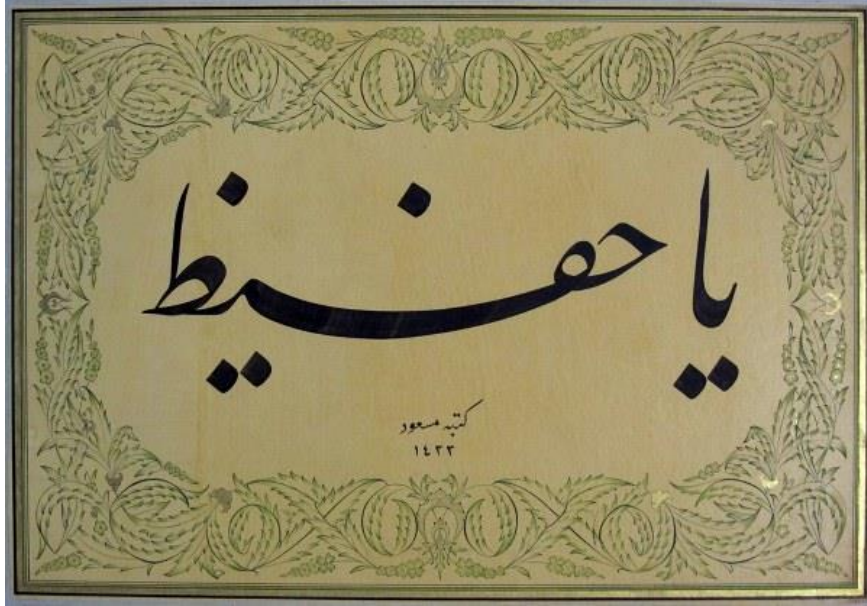 يا حفيظ
كتبه مسعود
١٤٣٣